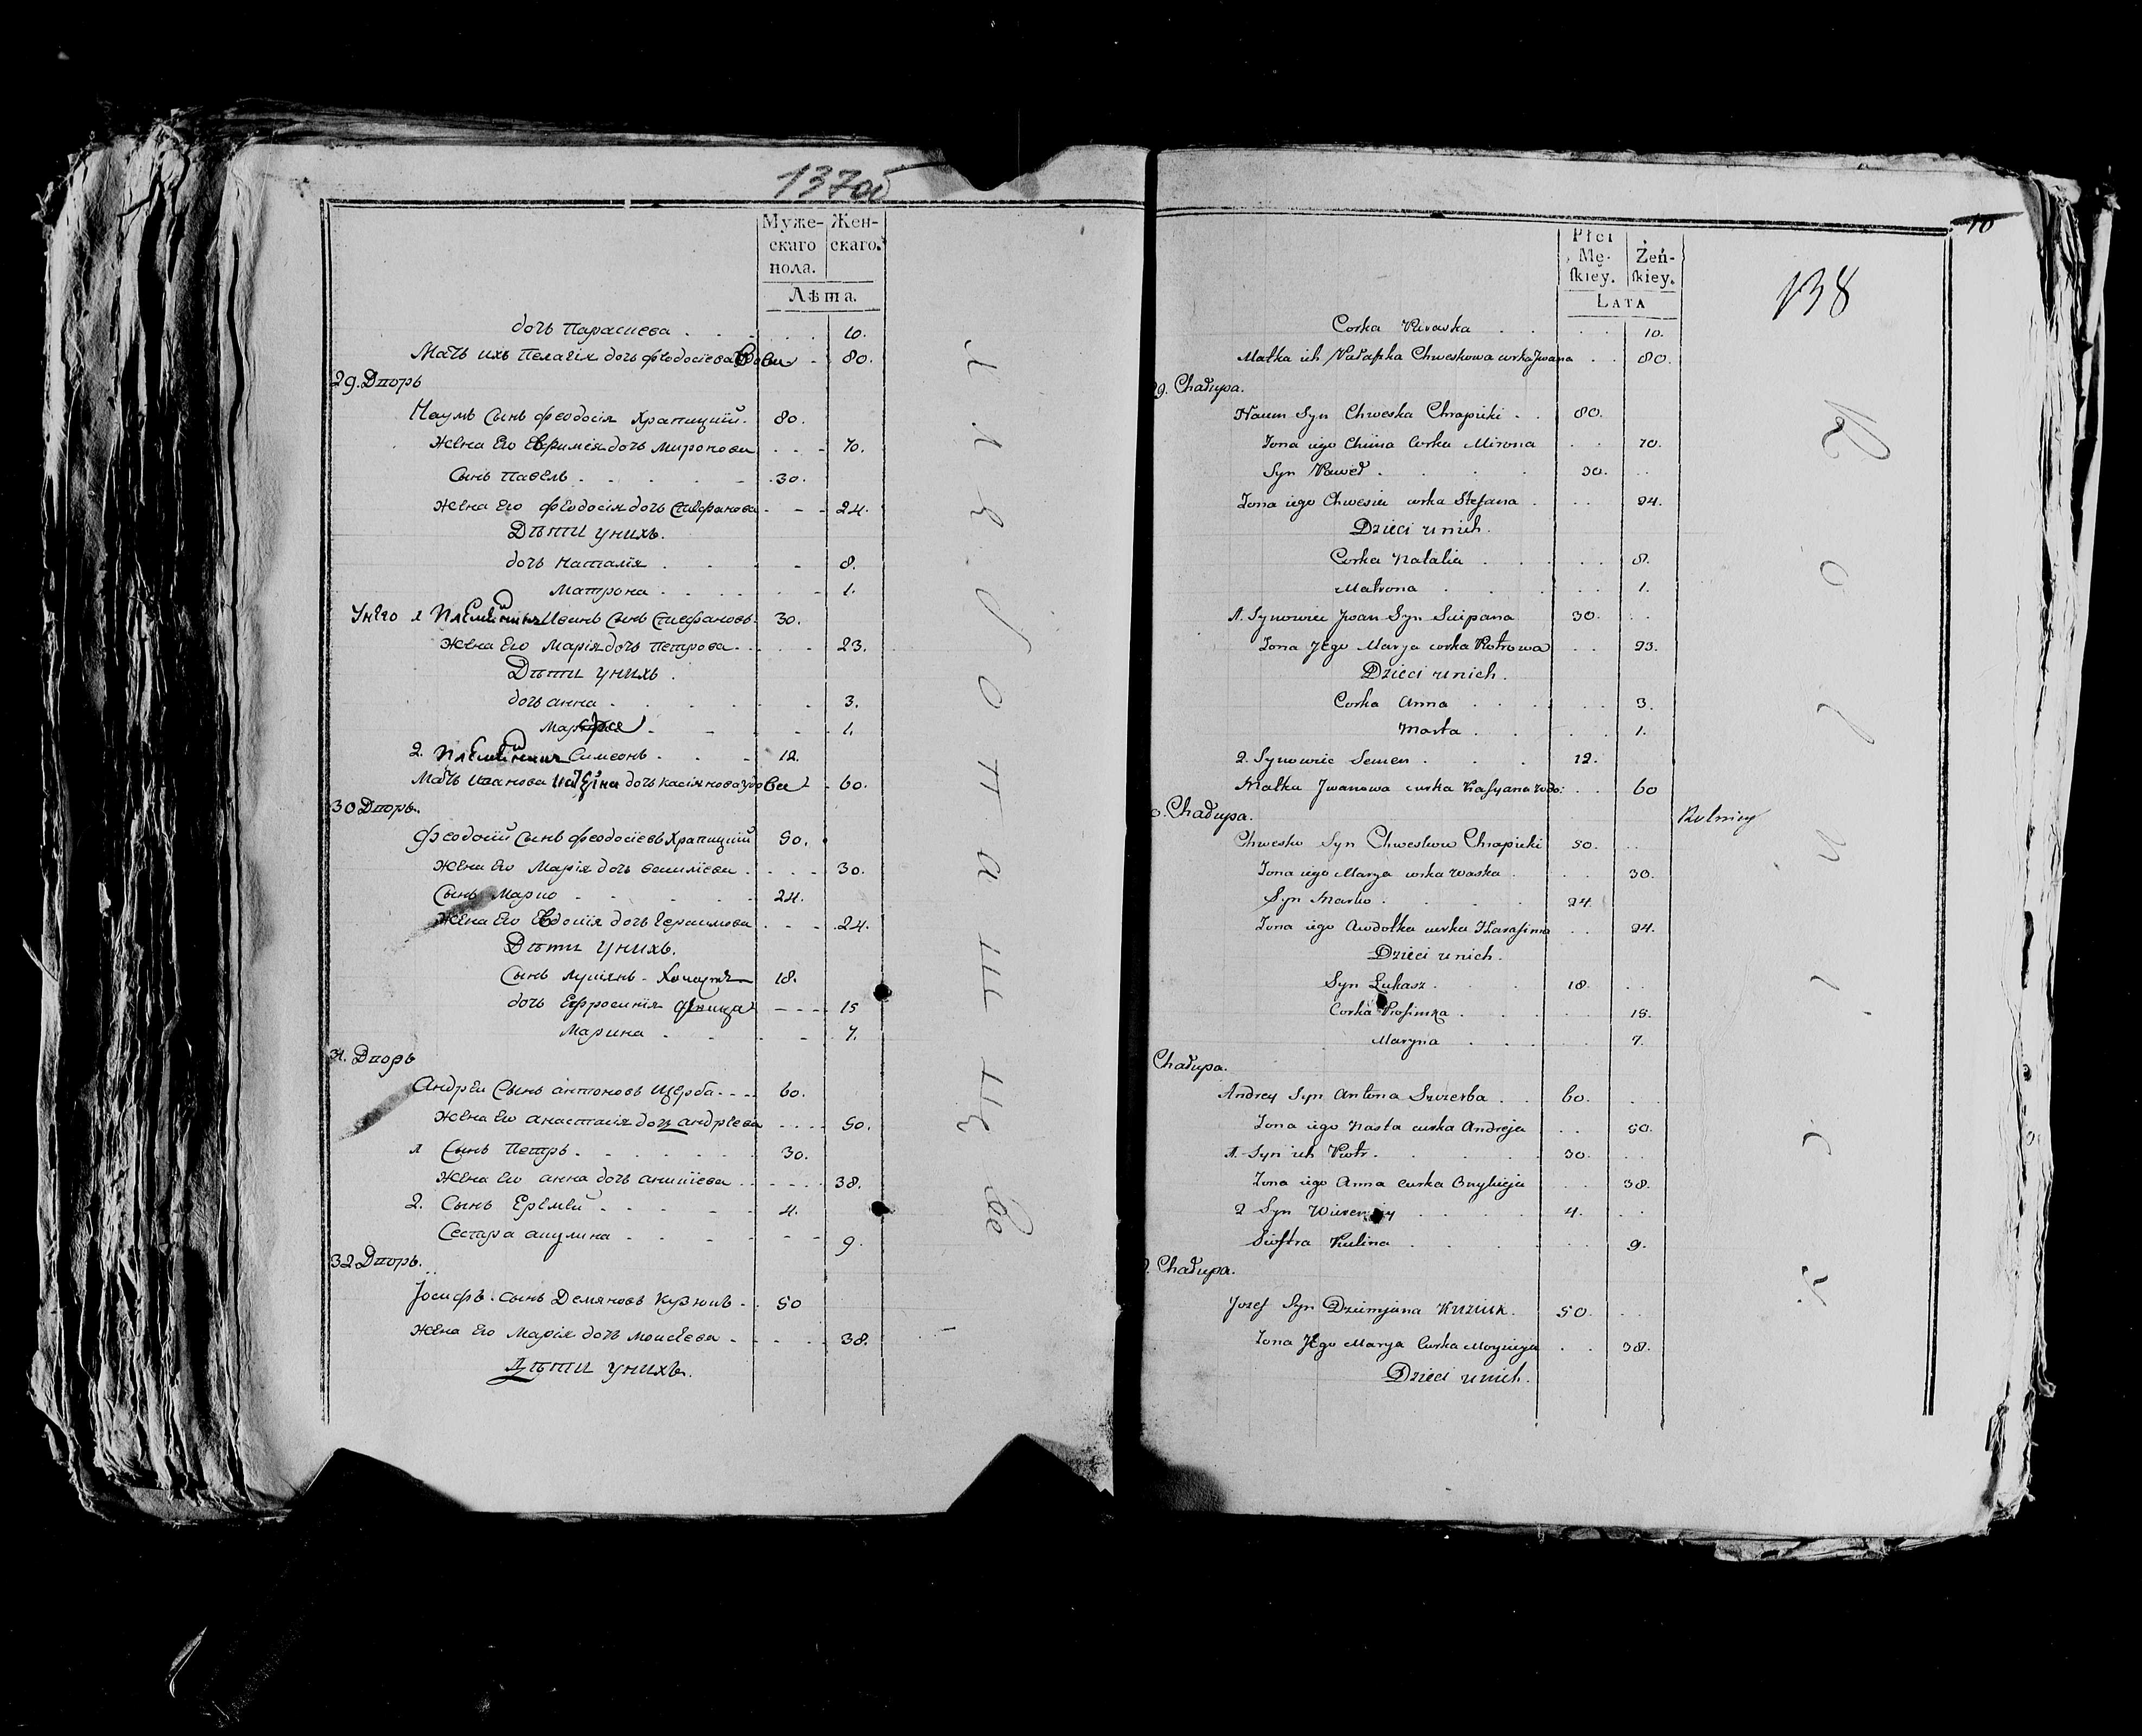 137об
Муже- Жен-
скаго скаго.
пола.
Лѣта.
дочь Парасиева 10.
Мать ихъ Пелагія дочь Феодосіева вдова 80.
29. Дворъ
Наумъ Сынъ Феодосія Храпицкій. 80.
Жена Его Евфимія дочь Миронова 70.
Сынъ Павелъ 30.
Жена Его Феодосія дочь Стефанова 24.
Дѣти у нихъ.
дочь Наталія 8.
Матрона 1.
У него 1 Племянникъ Иванъ Сынъ Стефановъ. 30.
Жена Его Марія дочь Петрова 23.
Дѣти у нихъ.
дочь анна 3.
Марфа 1.
2. Племянникъ Симеонъ 12.
Мать Иванова дочь Касіянова вдова 60.
30 Дворъ.
Феодосій Сынъ Феодосіевъ Храпицкій 50.
Жена Его Марія дочь 30.
Сынъ Марко 24.
Жена Его Евдокія дочь Герасимова 24.
Дѣти у нихъ.
Сынъ Лукіянъ - Холостъ 18.
дочь Ефросинія девица 15
Марина 7.
31. Дворъ
Андрей Сынъ антоновъ Щерба 60.
Жена Его анастасія дочь андрѣева 50.
1 Сынъ Петръ 30.
Жена Его анна дочь 38.
2. Сынъ Еремей 4.
Сестра акулина 9.
32 Дворъ.
Іосифъ Сынъ Демяновъ Кузюкъ 50
Жена Его Марія дочь Моисеева 38.
Дѣти у нихъ.
10
138
Płci
Mę- Żeń-
skiey. skiey.
LATA
Corka Paraska 10.
Matka ich Pałaszka Chweskowa corka Jwana 80.
29. Chałupa.
Naum Syn Chweska Chrapicki 80.
Zona iego Chima Corka Mirona 70.
Syn Paweł 30.
Zona iego Chwesia corka Stefana 24.
Dzieci u nich.
Corka Natalia 8.
Matrona 1.
1. Synowiec Jwan Syn Sciepana 30.
Zona Jego Marya corka Piotrowa 23.
Dzieci u nich.
Corka Anna 3.
Marta 1.
2. Synowiec Semen 12.
Matka Jwanowa corka Kasyana wdo: 60
30. Chałupa.
Rolnicy
Chwesko Syn Chweskow Chrapicki 50.
Zona iego Marya corka Waska 30.
Syn Marko 24.
Zona iego Awdotka corka Harasima 24.
Dzieci u nich.
Syn Łukasz 18.
Corka Prosimka 15.
Maryna 7.
Chałupa.
Andrey Syn Antona Szczerba 60.
Zona iego Nasta corka Andreja 50.
1. Syn ich Piotr 30.
Zona iego Anna corka 38.
2 Syn 4.
Siostra Kulina 9.
Chałupa.
Jozef Syn Dziemjana Kuziuk 50.
Zona Jego Marya Corka Moyzieja 38.
Dzieci u nich.